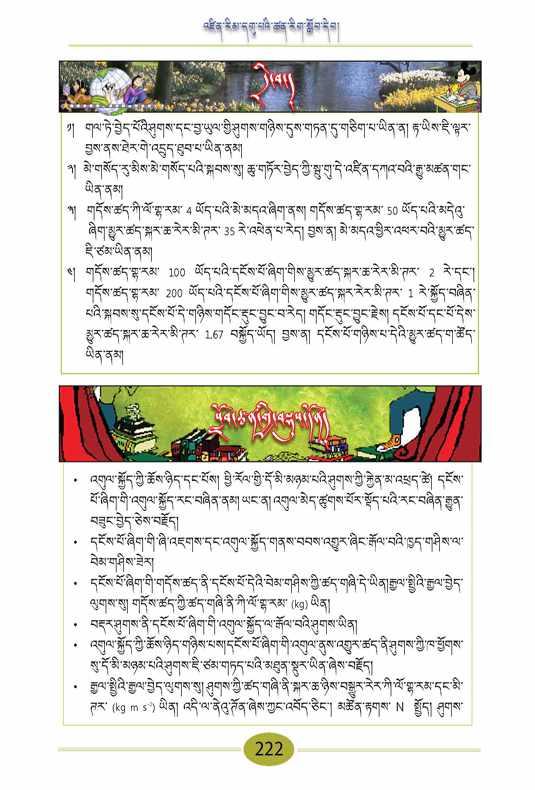 འཛིན་རིམ་དགུ་པའི་ཚན་རིག་སློབ་དེབ།
དྲི་བ།
༡། གལ་ཏེ་བྱེད་པོའི་ཤུགས་དང་བྱ་ཡུལ་གྱི་ཤུགས་གཉིས་དུས་གཏན་དུ་གཅིག་པ་ཡིན་ན། རྟ་ཡིས་ཇི་ལྟར་
བྱས་ནས་ཤིང་རྟ་འདྲུད་ཐུབ་པ་ཡིན་ནམ།
༢། མེ་གསོད་རུ་མིས་མེ་གསོད་པའི་སྐབས་སུ། ཆུ་གཏོར་བྱེད་ཀྱི་སྦུ་གུ་དེ་འཛིན་དཀའ་བའི་རྒྱུ་མཚན་གང་
ཡིན་ནམ།
༣། གདོས་ཚད་ཀི་ལོ་གྷ་རམ་ 4 ཡོད་པའི་མེ་མདའ་ཞིག་ནས། གདོས་ཚད་གྷ་རམ་ 50 ཡོད་པའི་མདེའུ་
ཞིག་མྱུར་ཚད་སྐར་ཆ་རེར་མི་ཊར་ 35 རེ་འཕེན་པ་རེད། བྱས་ན། མེ་མདའ་ཕྱིར་འཕར་བའི་མྱུར་ཚད་
ཇི་ཙམ་ཡིན་ནམ།
༤། གདོས་ཚད་གྷ་རམ་ 100 ཡོད་པའི་དངོས་པོ་ཞིག་གིས་མྱུར་ཚད་སྐར་ཆ་རེར་མི་ཊར་ 2 རེ་དང་།
གདོས་ཚད་གྷ་རམ་ 200 ཡོད་པའི་དངོས་པོ་ཞིག་གིས་མྱུར་ཚད་སྐར་རེར་མི་ཊར་ 1 རེ་སྐྱོད་བཞིན་
པའི་སྐབས་སུ་དངོས་པོ་དེ་གཉིས་གདོང་རྡུང་བྱུང་བ་རེད། གདོང་རྡུང་བྱུང་རྗེས། དངོས་པོ་དང་པོ་དེས་
མྱུར་ཚད་སྐར་ཆ་རེར་མི་ཊར་ 1.67 བསྐྱོད་ཡོད། བྱས་ན། དངོས་པོ་གཉིས་པ་དེའི་མྱུར་ཚད་ག་ཚོད་
ཡིན་ནམ།
• འགུལ་སྐྱོད་ཀྱི་ཆོས་ཉིད་དང་པོས། ཕྱི་རོལ་གྱི་དོ་མི་མཉམ་པའི་ཤུགས་ཀྱི་རྐྱེན་མ་འཕྲད་ཚེ། དངོས་
པོ་ཞིག་གི་འགུལ་སྐྱོད་རང་བཞིན་ནམ། ཡང་ན། འགུལ་མེད་ཚུགས་པོར་སྡོད་པའི་རང་བཞིན་རྒྱུན་
བཟུང་བྱེད་ཅེས་བརྗོད།
• དངོས་པོ་ཞིག་གི་ཞི་འཇགས་དང་འགུལ་སྐྱོད་གནས་བབས་འགྱུར་ཞིང་རྒོལ་བའི་ཁྱད་གཤིས་ལ་
བེམ་གཤིས་ཟེར།
• དངོས་པོ་ཞིག་གི་གདོས་ཚད་ནི་དངོས་པོ་དེའི་བེམ་གཤིས་ཀྱི་ཚད་གཞི་དེ་ཡིན། རྒྱལ་སྤྱིའི་རྒྱལ་བྱེད་
ལུགས་སུ། གདོས་ཚད་ཀྱི་ཚད་གཞི་ནི་ཀི་ལོ་གྷ་རམ་ (kg) ཡིན།
• བརྡར་ཤུགས་ནི་དངོས་པོ་ཞིག་གི་འགུལ་སྐྱོད་ལ་རྒོལ་བའི་ཤུགས་ཡིན།
• འགུལ་སྐྱོད་ཀྱི་ཆོས་ཉིད་གཉིས་པས། དངོས་པོ་ཞིག་གི་འགུལ་ནུས་འགྱུར་ཚད་ནི་ཤུགས་ཀྱི་ཁ་ཕྱོགས་
སུ་དོ་མི་མཉམ་པའི་ཤུགས་ཇི་ཙམ་གཏད་པའི་མཐུན་སྡུར་ཡིན་ཞེས་བརྗོད།
• རྒྱལ་སྤྱིའི་རྒྱལ་བྱེད་ལུགས་སུ། ཤུགས་ཀྱི་ཚད་གཞི་ནི་སྐར་ཆ་ཉིས་བསྒྱུར་རེར་ཀི་ལོ་གྷ་རམ་དང་མི་
ཊར་ (kg m s⁻²) ཡིན། འདི་ལ་ནེའུ་ཊོན་ཞེས་ཀྱང་འབོད་ཅིང་། མཚོན་རྟགས་ N སྤྱོད། ཤུགས་
222